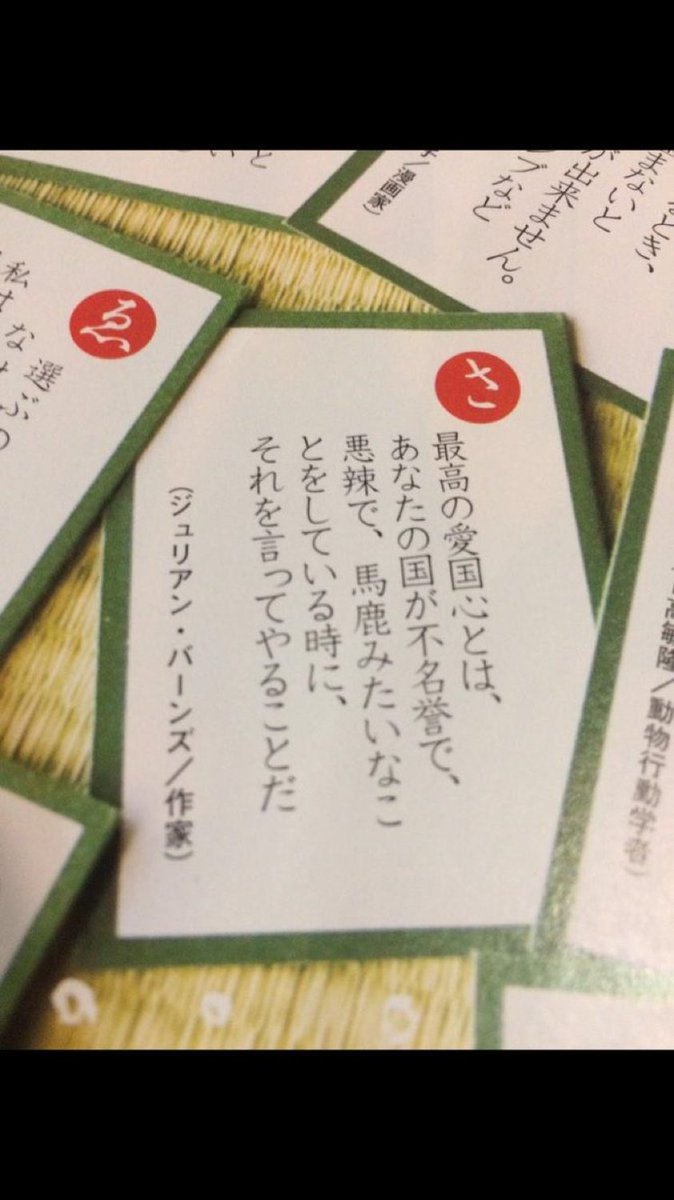 さ
最高の愛国心とは、
あなたの国が不名誉で、
悪辣で、馬鹿みたいなこ
とをしている時に、
それを言ってやることだ
（ジュリアン・バーンズ／作家）
ゑ
選ぶ
私はな
とき、
まないと
が出来ません。
ブなど
／漫画家）
高敏隆／動物行動学者）